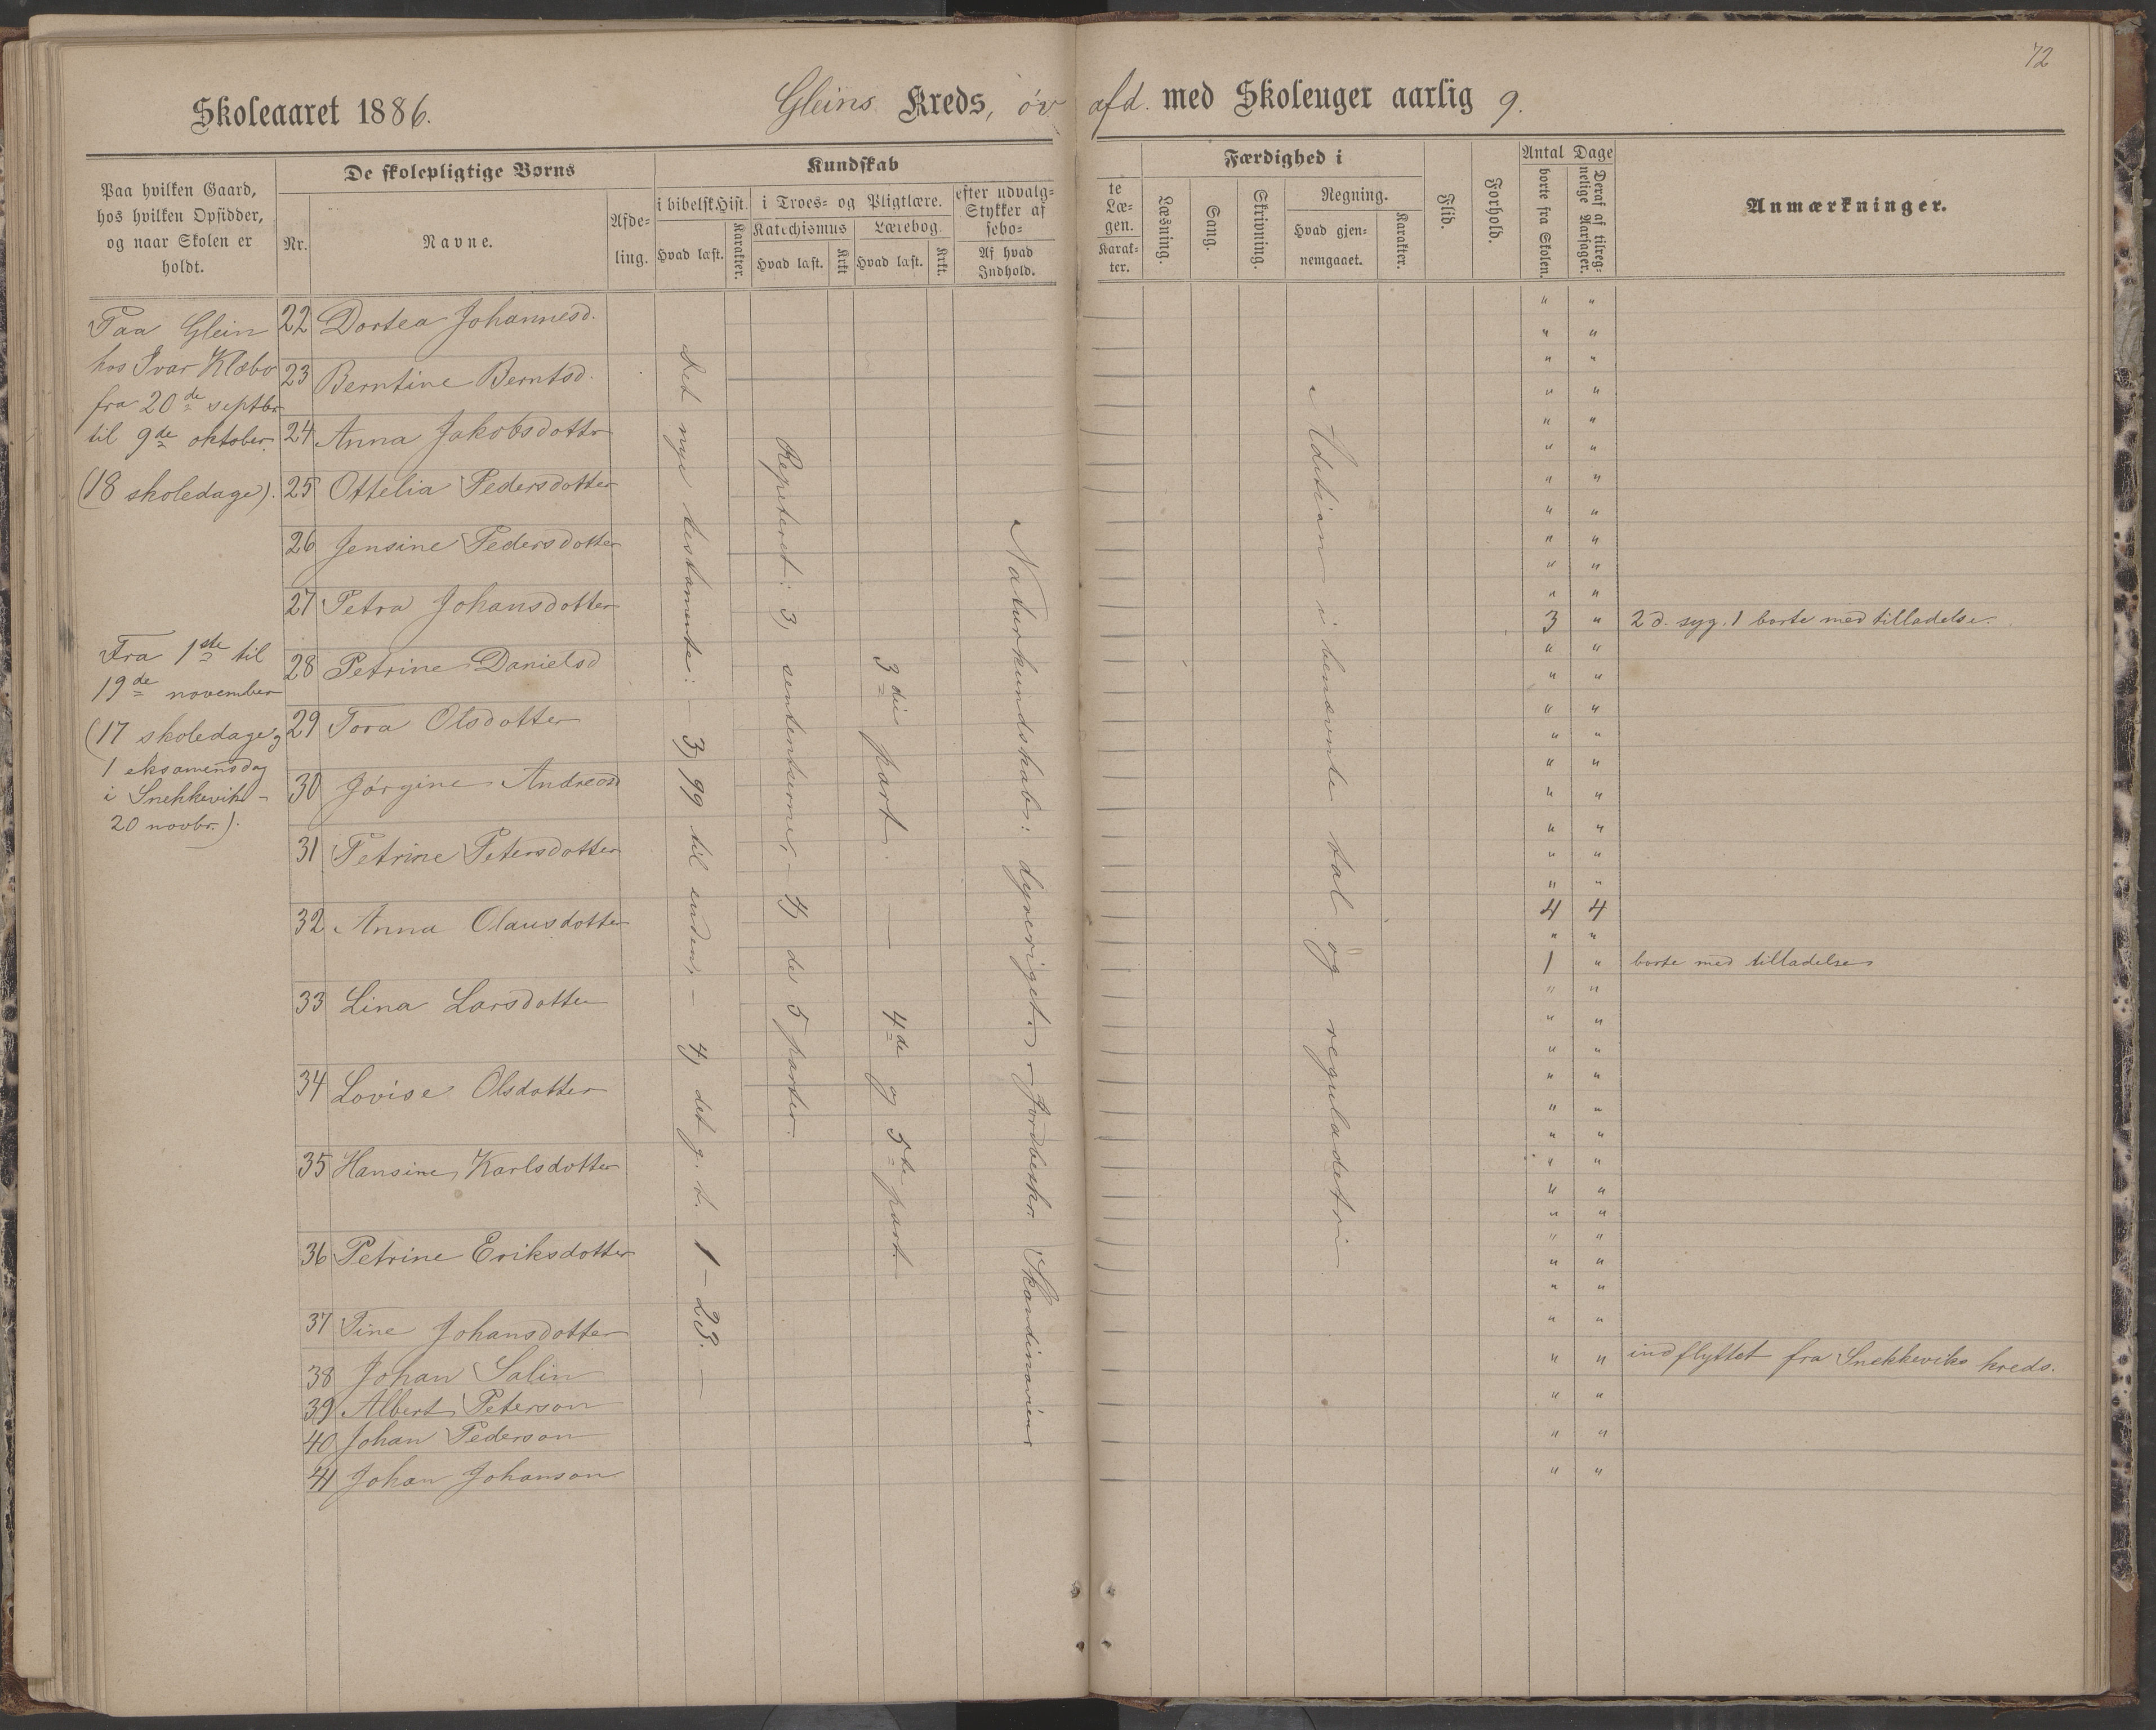 72
Skoleaaret 1886. Gleins Kreds, öv afd. med Skoleuger aarlig 9.
Paa hvilken Gaard,
hos hvilken Opsidder,
og naar Skolen er
holdt.
De skolepligtige Børns
Nr.
Navne.
Afde-
ling.
Kundskab
i bibelsk Hist.
Hvad læst.
Karakter.
i Troes- og Pligtlære.
Katechismus
Hvad læst.
Krkt.
Lærebog.
Hvad læst.
Krkt.
efter udvalg-
Stykker af
sebo-
Af hvad
Indhold.
te
Læ-
gen.
Karak-
ter.
Færdighed i
Læsning.
Sang.
Skrivning.
Regning.
Hvad gjen-
nemgaaet.
Karakter.
Flid.
Forhold.
Antal Dage
borte fra Skolen.
Deraf af tilreg-
nelige Aarsager.
Anmærkninger.
Paa Glein
hos Ivar Klæbo
fra 20de septbr
til 9de oktober.
(18 skoledage).
Fra 1ste til
19de november
(17 skoledage og
1 eksamensdag
i Snekkevik -
20 novbr.).
22 Dortea Johannesd.
23 Berntine Berntsd.
24 Anna Jakobsdotter
25 Ottelia Pedersdotter
26 Jensine Pedersdotter
27 Petra Johansdotter
28 Petrine Danielsd
29 Tora Olsdotter
30 Jörgine Andreasd
31 Petrine Petersdotter
32 Anna Olausdotter
33 Lina Larsdotter
34 Lovise Olsdotter
35 Hansine Karlsdotter
36 Petrine Eriksdotter
37 Tine Johansdotter
38 Johan Salin
39 Albert Peterson
40 Johan Pederson
41 Johan Johanson
Det nye testamente: - 3, 99 til enden, - 4, det g. t. 1 - 23. -
Repeteret: 3, sentenserne, - 4, de 5 parter.
3die part. - 4de og 5te part.
Naturkundskab: dyreriget. - Jordbeskr. Skandinavien
Adution i benævnte tal og reguladetri
3 " 2 d. syg. 1 borte med tilladelse.
4 4
1 " borte med tilladelse
" " indflyttet fra Snekkeviks kreds.